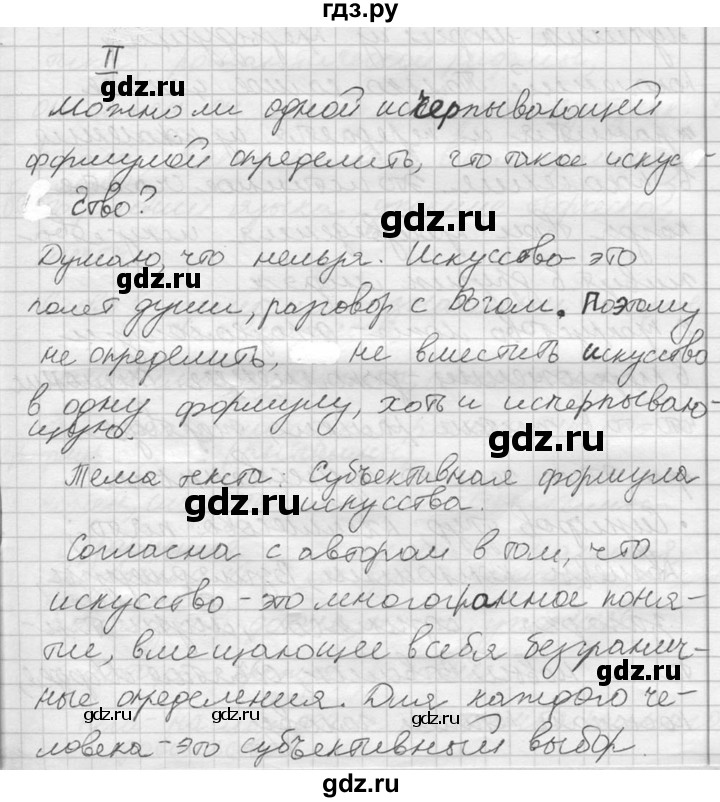 гдз.ру
II
gdz.ru
Можно ли одной исчерпывающей
формулой определить, что такое искус-
ство?
gdz.ru
Думаю, что нельзя. Искусство - это
gdz.ru
полет души, разговор с Богом. Поэтому
не определить, не вместить искусство
в одну формулу, хоть и исперпываю-
щую.
gdz.ru
Тема текста: Субъективная формула
gdz.ru
искусства.
Согласна с автором в том, что
gdz.ru
искусство - это многогранное поня-
тие, вмещающее в себя безгранич-
gdz.ru
ные определения. Для каждого че-
gdz.ru gdz.ru gdz.ru gdz.ru
ловека - это субъективный выбор.
gdz.ru